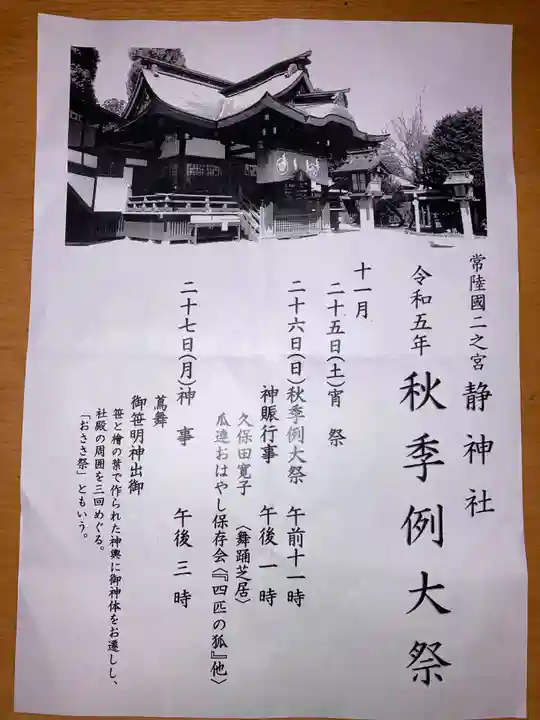 常陸國二之宮 静神社
令和五年 秋季例大祭
十一月
二十五日(土)宵祭
二十六日(日)秋季例大祭 午前十一時
神賑行事 午後一時
久保田寛子 〈舞踊芝居〉
瓜連おはやし保存会〈『四匹の狐』他〉
二十七日(月)神事 午後三時
蔦舞
御笹明神出御
笹と檜の葉で作られた神輿に御神体をお遷しし、
社殿の周囲を三回めぐる。
「おささ祭」ともいう。